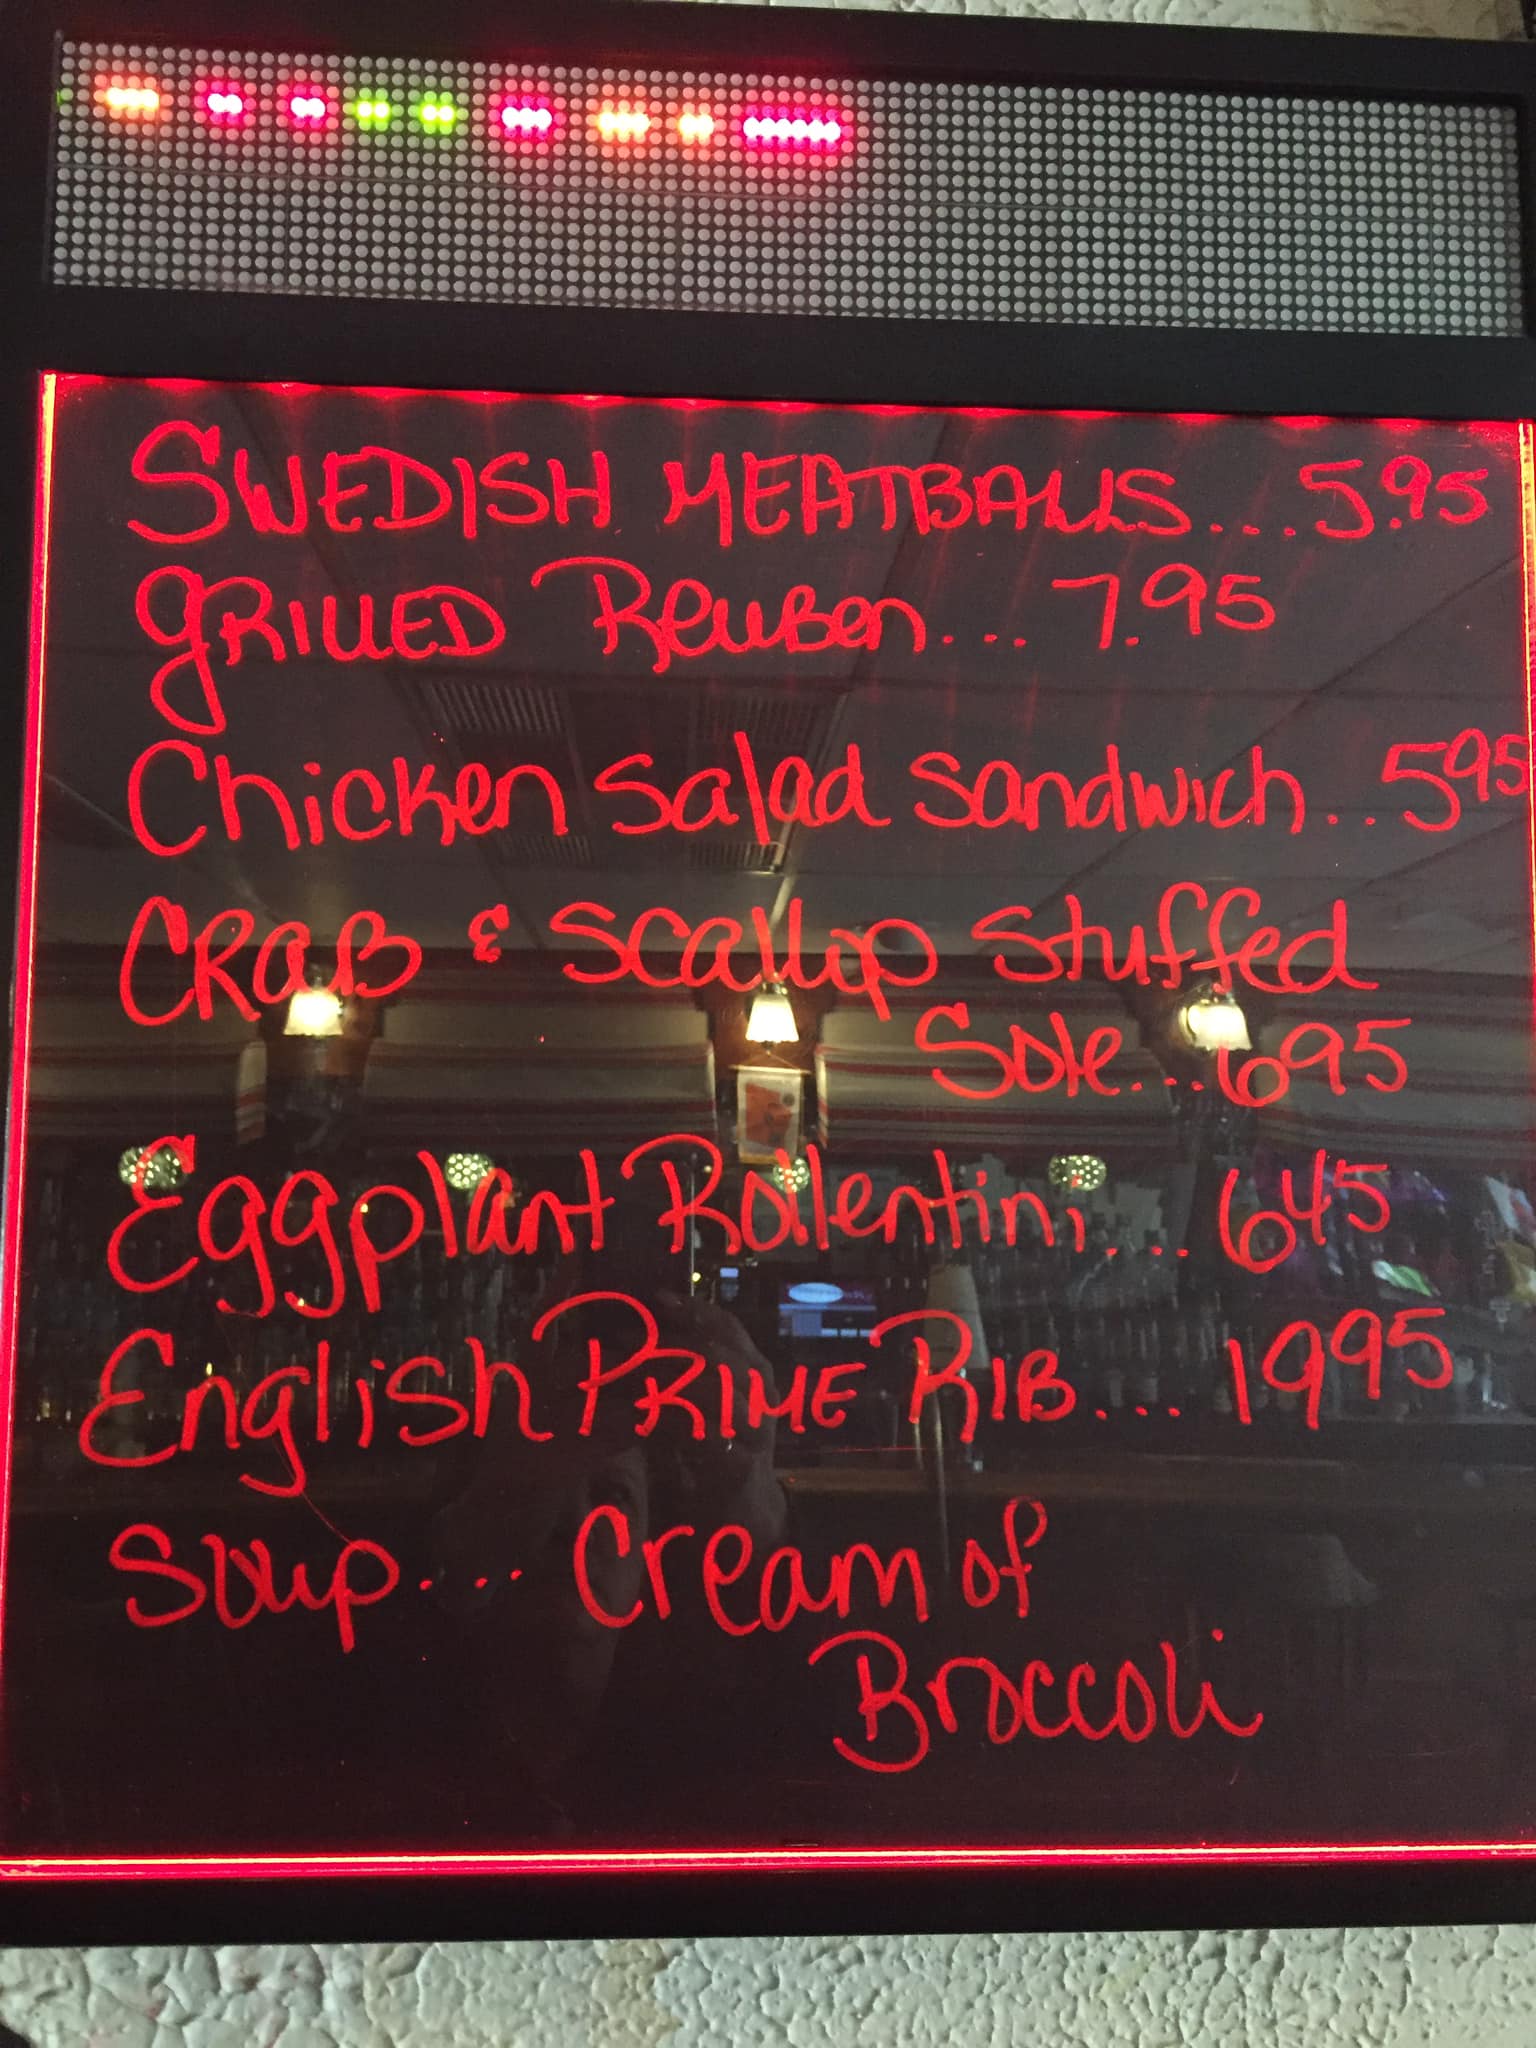 SWEDISH MEATBALLS... 5.95
GRILLED Reuben... 7.95
Chicken Salad Sandwich... 595
CRAB & Scallop Stuffed
Sole... 695
Eggplant Rollentini... 645
English PRIME RIB.... 1995
Soup.... Cream of
Broccoli